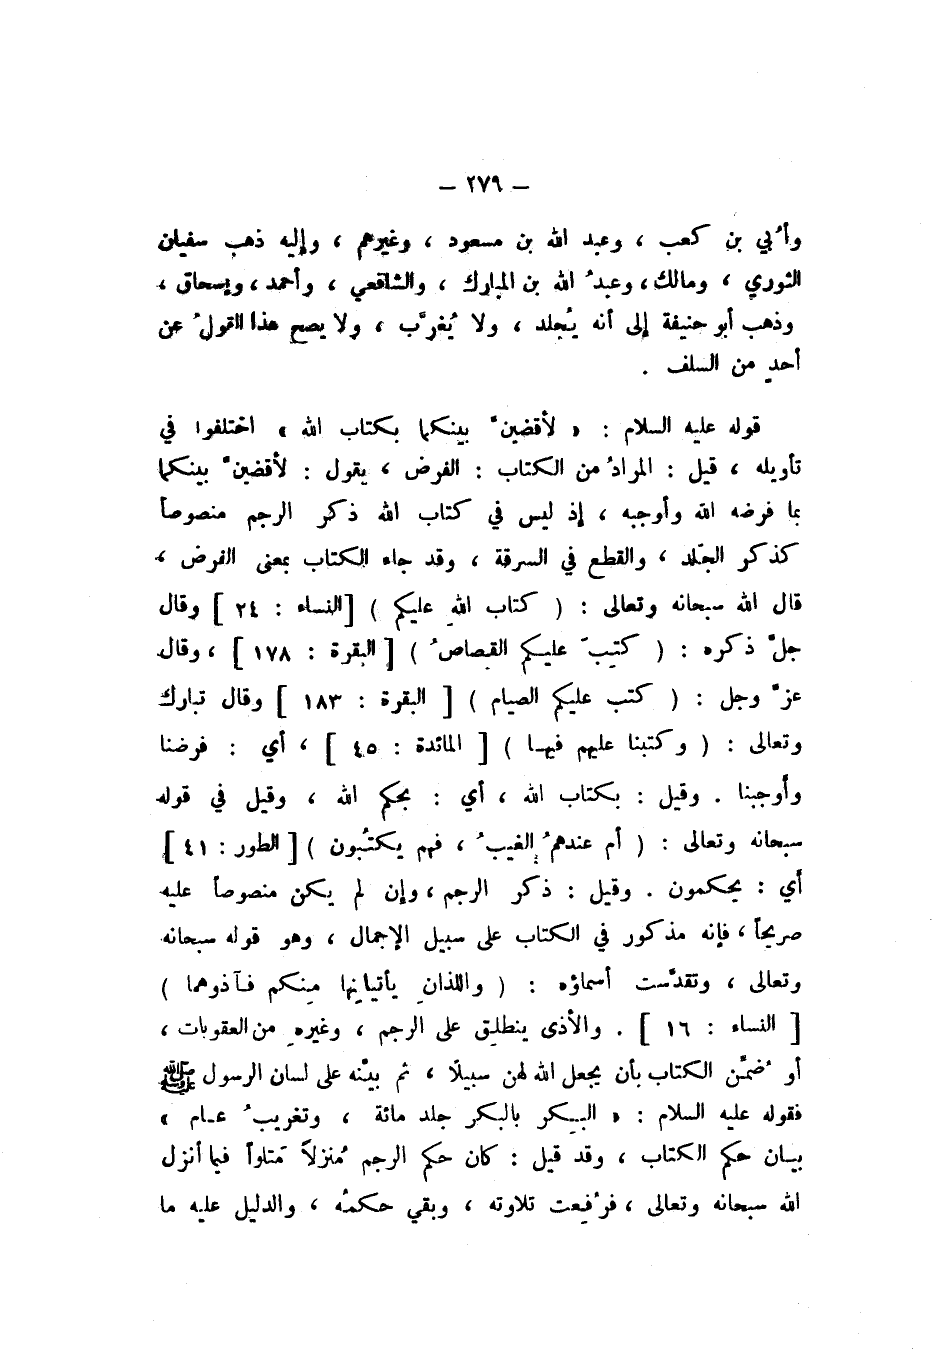 — ٢٧٩ —
وأُبي بن كعب ، وعبد الله بن مسعود ، وغيرهم ، وإليه ذهب سفيان
الثوري ، ومالك ، وعبدُ الله بن المبارك ، والشافعي ، وأحمد ، وإسحاق ،
وذهب أبو حنيفة إلى أنه يُجلد ، ولا يُغرَّب ، ولا يصح هذا القولُ عن
أحدٍ من السلف .
قوله عليه السلام : « لأقضينَّ بينكما بكتاب الله » اختلفوا في
تأويله ، قيل : المرادُ من الكتاب : الفرض ، يقول : لأقضينَّ بينكما
بما فرضه الله وأوجبه ، إذ ليس في كتاب الله ذكر الرجم منصوصاً
كذكر الجَلد ، والقطع في السرقة ، وقد جاء الكتاب بمعنى الفرض ،
قال الله سبحانه وتعالى : ( كتاب اللهِ عليكم ) [النساء : ٢٤ ] وقال
جلَّ ذكره : ( كتِبَ عليكم القصاصُ ) [ البقرة : ١٧٨ ] ، وقال
عزَّ وجل : ( كتب عليكم الصيام ) [ البقرة : ١٨٣ ] وقال تبارك
وتعالى : ( وكتبنا عليهم فيها ) [ المائدة : ٤٥ ] ، أي : فرضنا
وأوجبنا . وقيل : بكتاب الله ، أي : بحكم الله ، وقيل في قوله
سبحانه وتعالى : ( أم عندهمُ الغيبُ ، فهم يكتُبون ) [ الطور : ٤١ ]
أي : يحكمون . وقيل : ذكر الرجم ، وإن لم يكن منصوصاً عليه
صريحاً ، فإنه مذكور في الكتاب على سبيل الإجمال ، وهو قوله سبحانه
وتعالى ، وتقدَّست أسماؤه : ( واللذانِ يأتيانِها مِنكم فآذوهما )
[ النساء : ١٦ ] . والأذى ينطلِق على الرجم ، وغيرِه من العقوبات ،
أو ضُمِّن الكتاب بأن يجعل الله لهن سبيلًا ، ثم بيَّنه على لسان الرسول ﷺ
فقوله عليه السلام : « البِكر بالبكر جلد مائة ، وتغريبُ عام »
بيان حكم الكتاب ، وقد قيل : كان حكم الرجم مُنزلاً متلواً فيما أنزل
الله سبحانه وتعالى ، فرُفِعت تلاوته ، وبقي حكمُه ، والدليل عليه ما